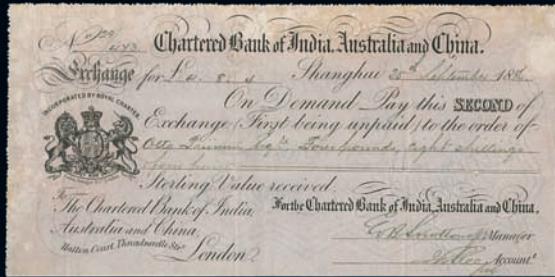 No
Chartered Bank of India, Australia and China.
Exchange for £4. 8. 4 Shanghai 25th September 188
INCORPORATED BY ROYAL CHARTER
On Demand Pay this SECOND of
Exchange (First being unpaid) to the order of
Otto Esqre Four pounds, eight shillings
Sterling Value received.
To
The Chartered Bank of India,
Australia and China,
Hatton Court, Threadneedle Strt
London
For the Chartered Bank of India, Australia and China.
Manager
Accountt